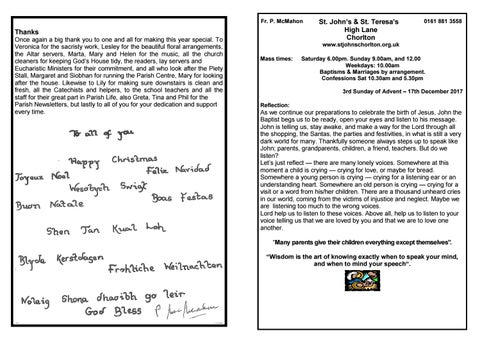 Thanks
Once again a big thank you to one and all for making this year special. To
Veronica for the sacristy work, Lesley for the beautiful floral arrangements,
the Altar servers, Marta, Mary and Helen for the music, all the church
cleaners for keeping God's House tidy, the readers, lay servers and
Eucharistic Ministers for their commitment, and all who look after the Piety
Stall, Margaret and Siobhan for running the Parish Centre, Mary for looking
after the house. Likewise to Lily for making sure downstairs is clean and
fresh, all the Catechists and helpers, to the school teachers and all the
staff for their great part in Parish Life, also Greta, Tina and Phil for the
Parish Newsletters, but lastly to all of you for your dedication and support
every time.
To all of you
Happy Christmas
Joyeux Noël Féliz Navidad
Wesołych Świąt
Buon Natale Boas Festas
Shen Tan Kual Loh
Blyde Kerstdagen
Frohliche Weilnachten
Nolaig Shona dhaoibh go leir
God Bless P McMahon
Fr. P. McMahon St. John's & St. Teresa's 0161 881 3558
High Lane
Chorlton
www.stjohnschorlton.org.uk
Mass times: Saturday 6.00pm. Sunday 9.00am, and 12.00
Weekdays: 10.00am
Baptisms & Marriages by arrangement.
Confessions Sat 10.30am and 5.30pm
3rd Sunday of Advent – 17th December 2017
Reflection:
As we continue our preparations to celebrate the birth of Jesus, John the
Baptist begs us to be ready, open your eyes and listen to his message.
John is telling us, stay awake, and make a way for the Lord through all
the shopping, the Santas, the parties and festivities, in what is still a very
dark world for many. Thankfully someone always steps up to speak like
John; parents, grandparents, children, a friend, teachers. But do we
listen?
Let's just reflect — there are many lonely voices. Somewhere at this
moment a child is crying — crying for love, or maybe for bread.
Somewhere a young person is crying — crying for a listening ear or an
understanding heart. Somewhere an old person is crying — crying for a
visit or a word from his/her children. There are a thousand unheard cries
in our world, coming from the victims of injustice and neglect. Maybe we
are listening too much to the wrong voices.
Lord help us to listen to these voices. Above all, help us to listen to your
voice telling us that we are loved by you and that we are to love one
another.
"Many parents give their children everything except themselves".
"Wisdom is the art of knowing exactly when to speak your mind,
and when to mind your speech".